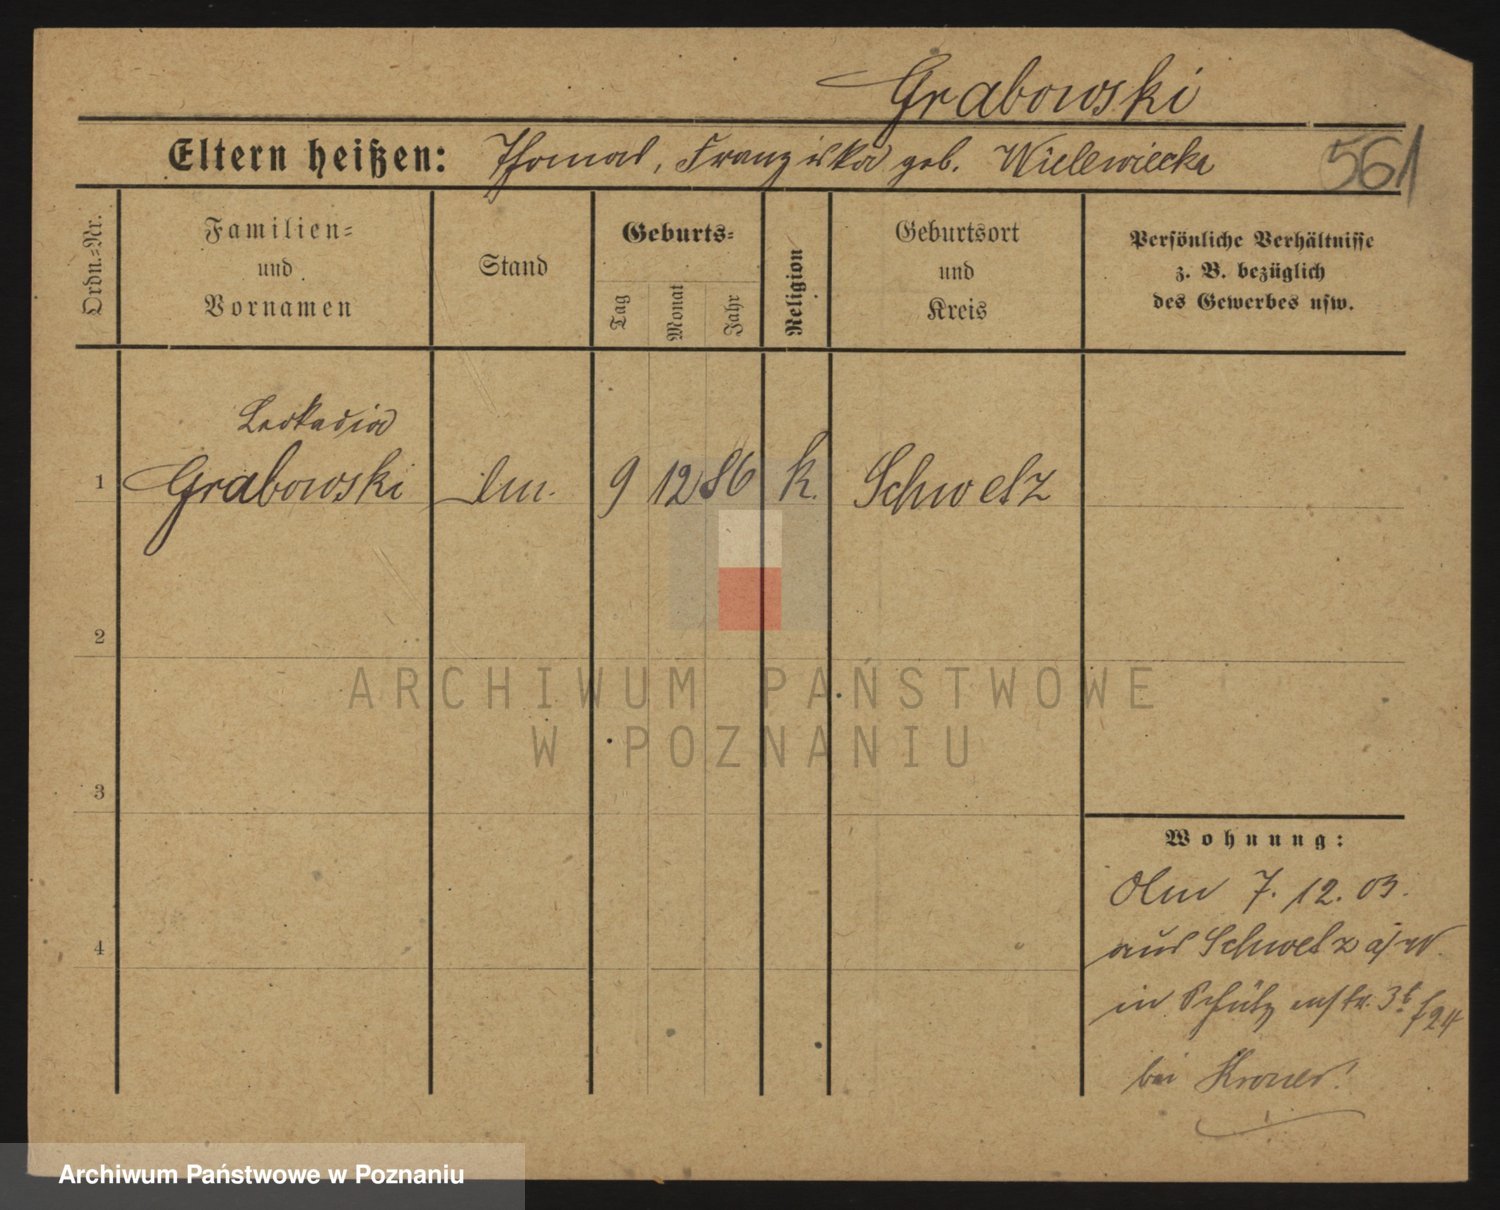 Grabowski
Eltern heißen: Thomas, Franziska geb. Wielewiecka
561
Ordn.-Nr.
Familien-
und
Vornamen
Stand
Geburts-
Tag
Monat
Jahr
Religion
Geburtsort
und
Kreis
Persönliche Verhältnisse
z. B. bezüglich
des Gewerbes usw.
Leokadia
1 Grabowski 9 12 86 k. Schwetz
2
ARCHIWUM PAŃSTWOWE
W POZNANIU
3
Wohnung:
7. 12. 03.
4
aus Schwetz a/W.
in Schützenstr. 3b
bei Kroner!
Archiwum Państwowe w Poznaniu